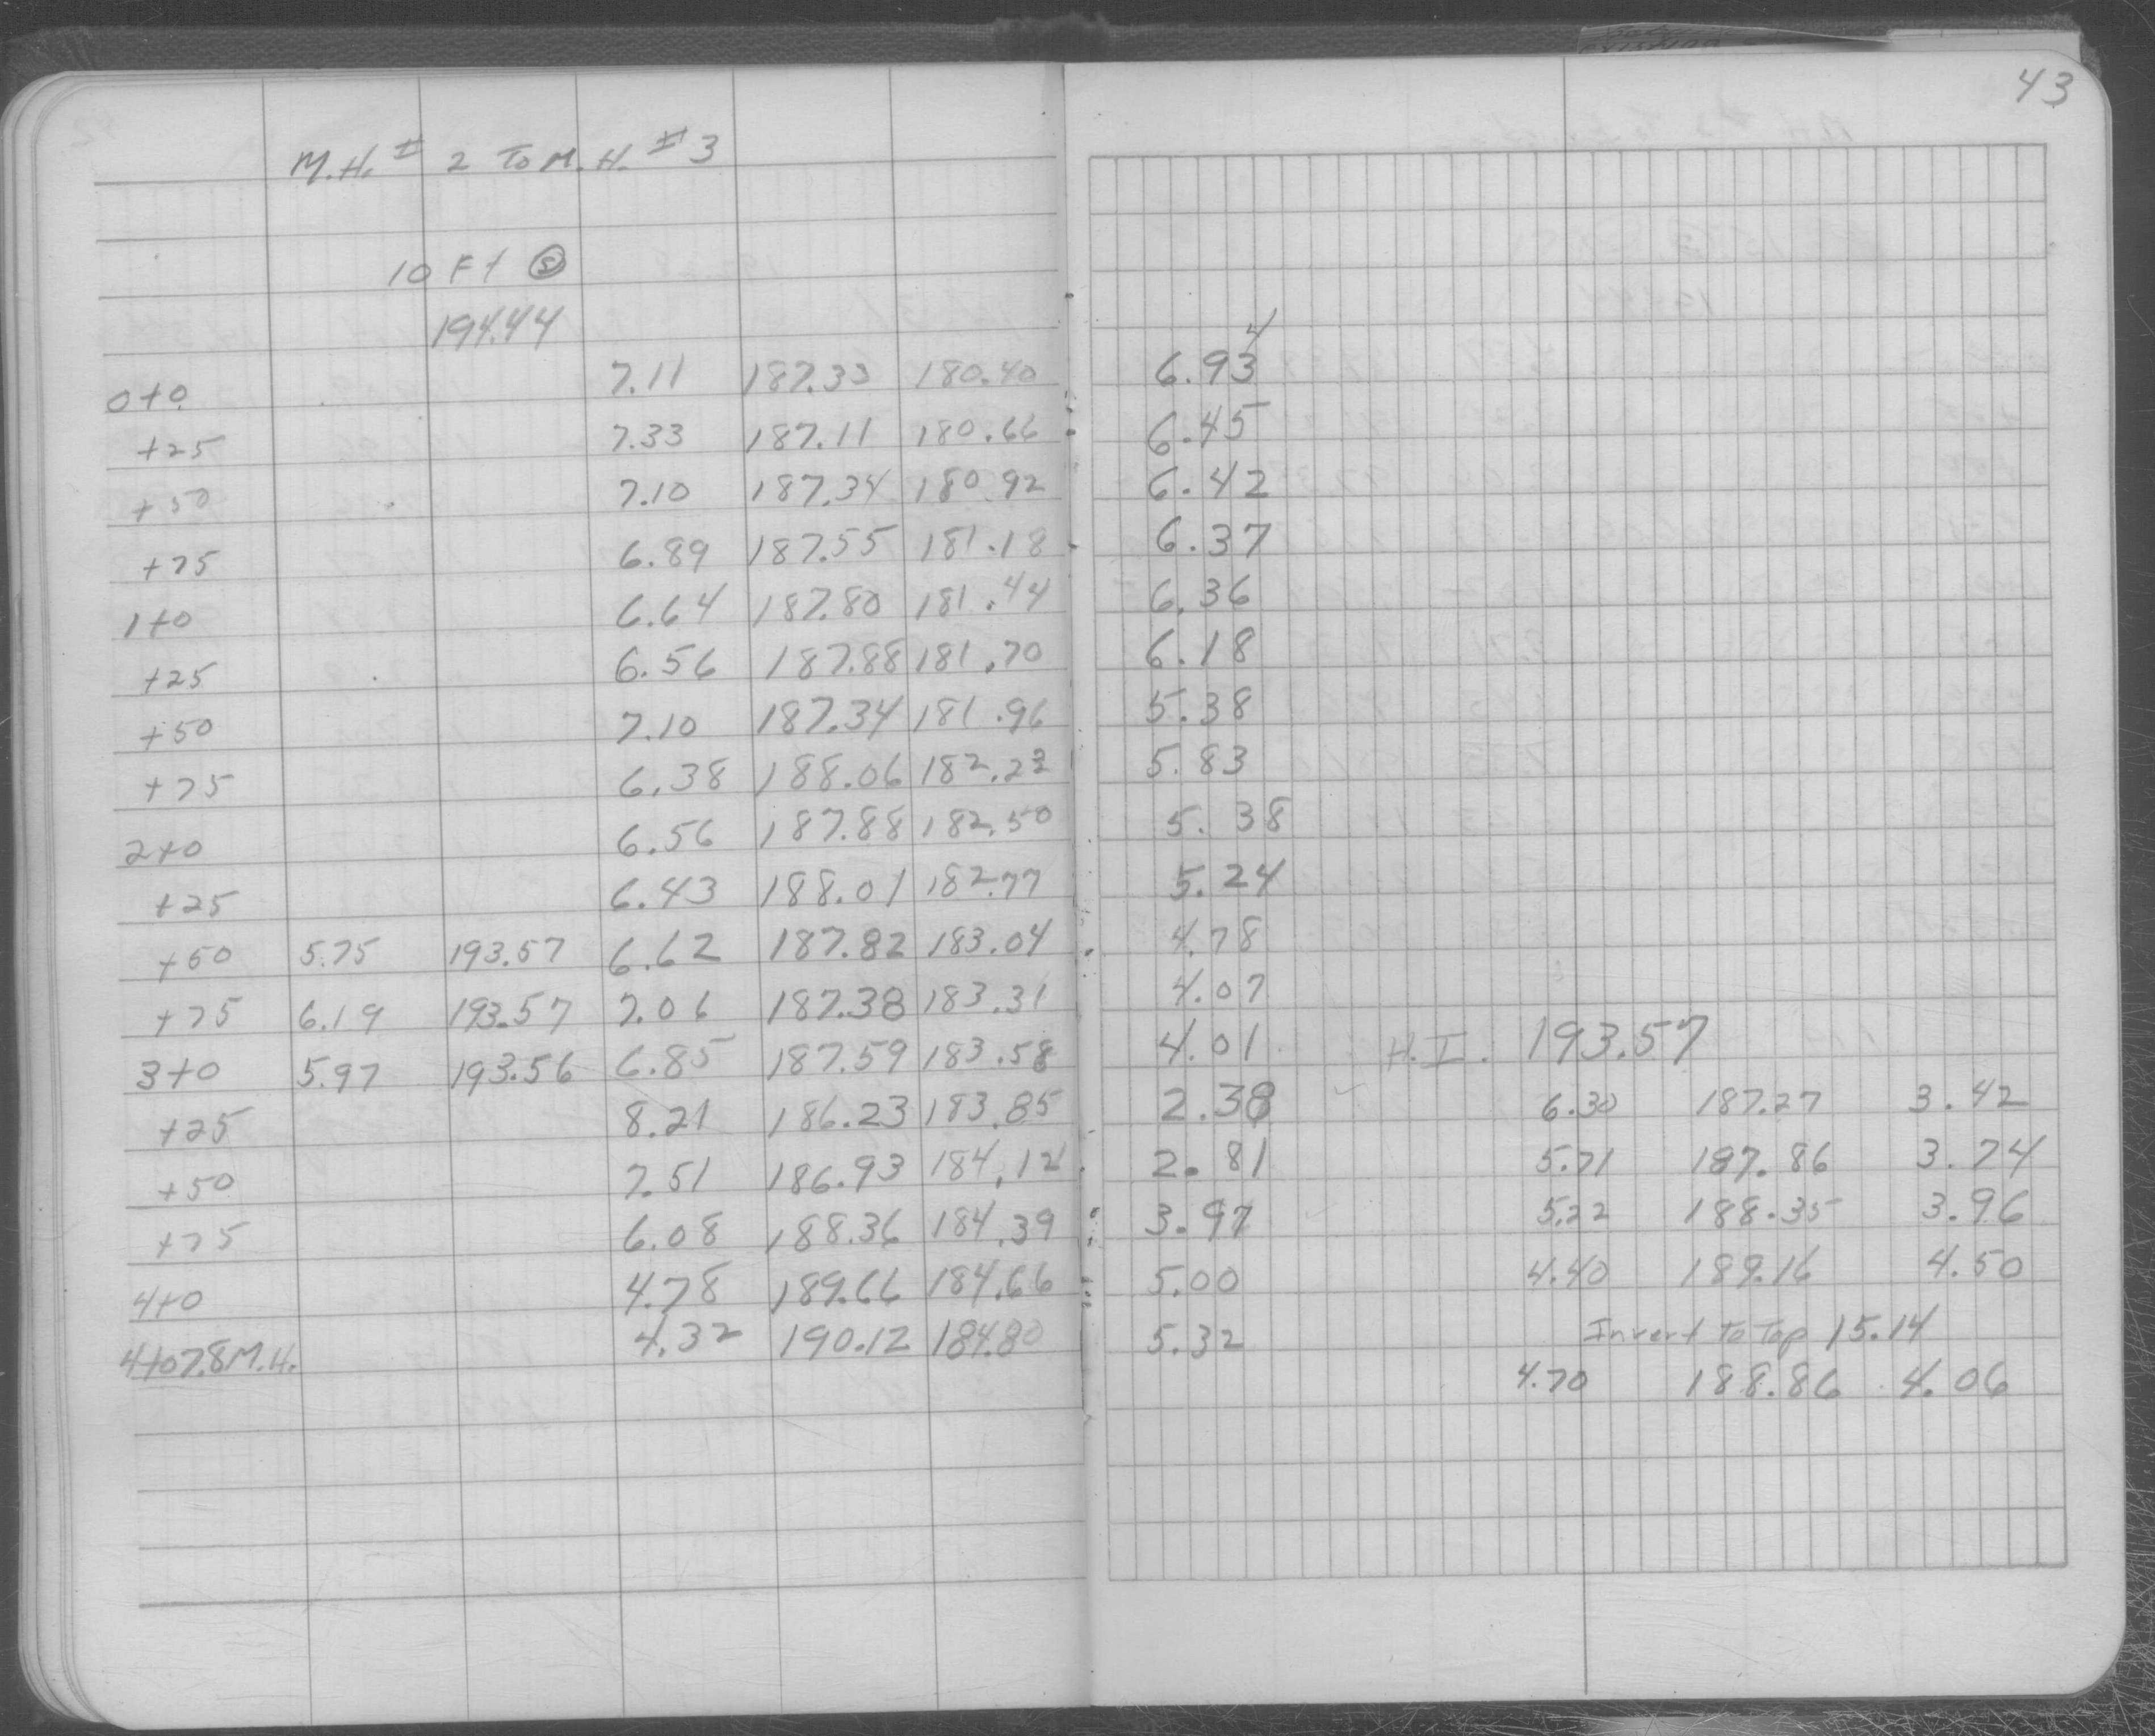 43
M.H. # 2 To M.H. # 3
10 Ft Ⓢ
194.44
4
0+0 7.11 187.33 180.40 6.93
+25 7.33 187.11 180.66 6.45
+50 7.10 187.34 180.92 6.42
+75 6.89 187.55 181.18 6.37
1+0 6.64 187.80 181.44 6.36
+25 6.56 187.88 181.70 6.18
+50 7.10 187.34 181.96 5.38
+75 6.38 188.06 182.23 5.83
2+0 6.56 187.88 182.50 5.38
+25 6.43 188.01 182.77 5.24
+50 5.75 193.57 6.62 187.82 183.04 4.78
+75 6.19 193.57 7.06 187.38 183.31 4.07
3+0 5.97 193.56 6.85 187.59 183.58 4.01 H.I. 193.57
+25 8.21 186.23 183.85 2.38 6.30 187.27 3.42
+50 7.51 186.93 184.12 2.81 5.71 187.86 3.74
+75 6.08 188.36 184.39 3.97 5.22 188.35 3.96
4+0 4.78 189.66 184.66 5.00 4.40 189.16 4.50
4+07.8 M.H. 4.32 190.12 184.80 5.32 Invert To Top 15.14
4.70 188.86 4.06